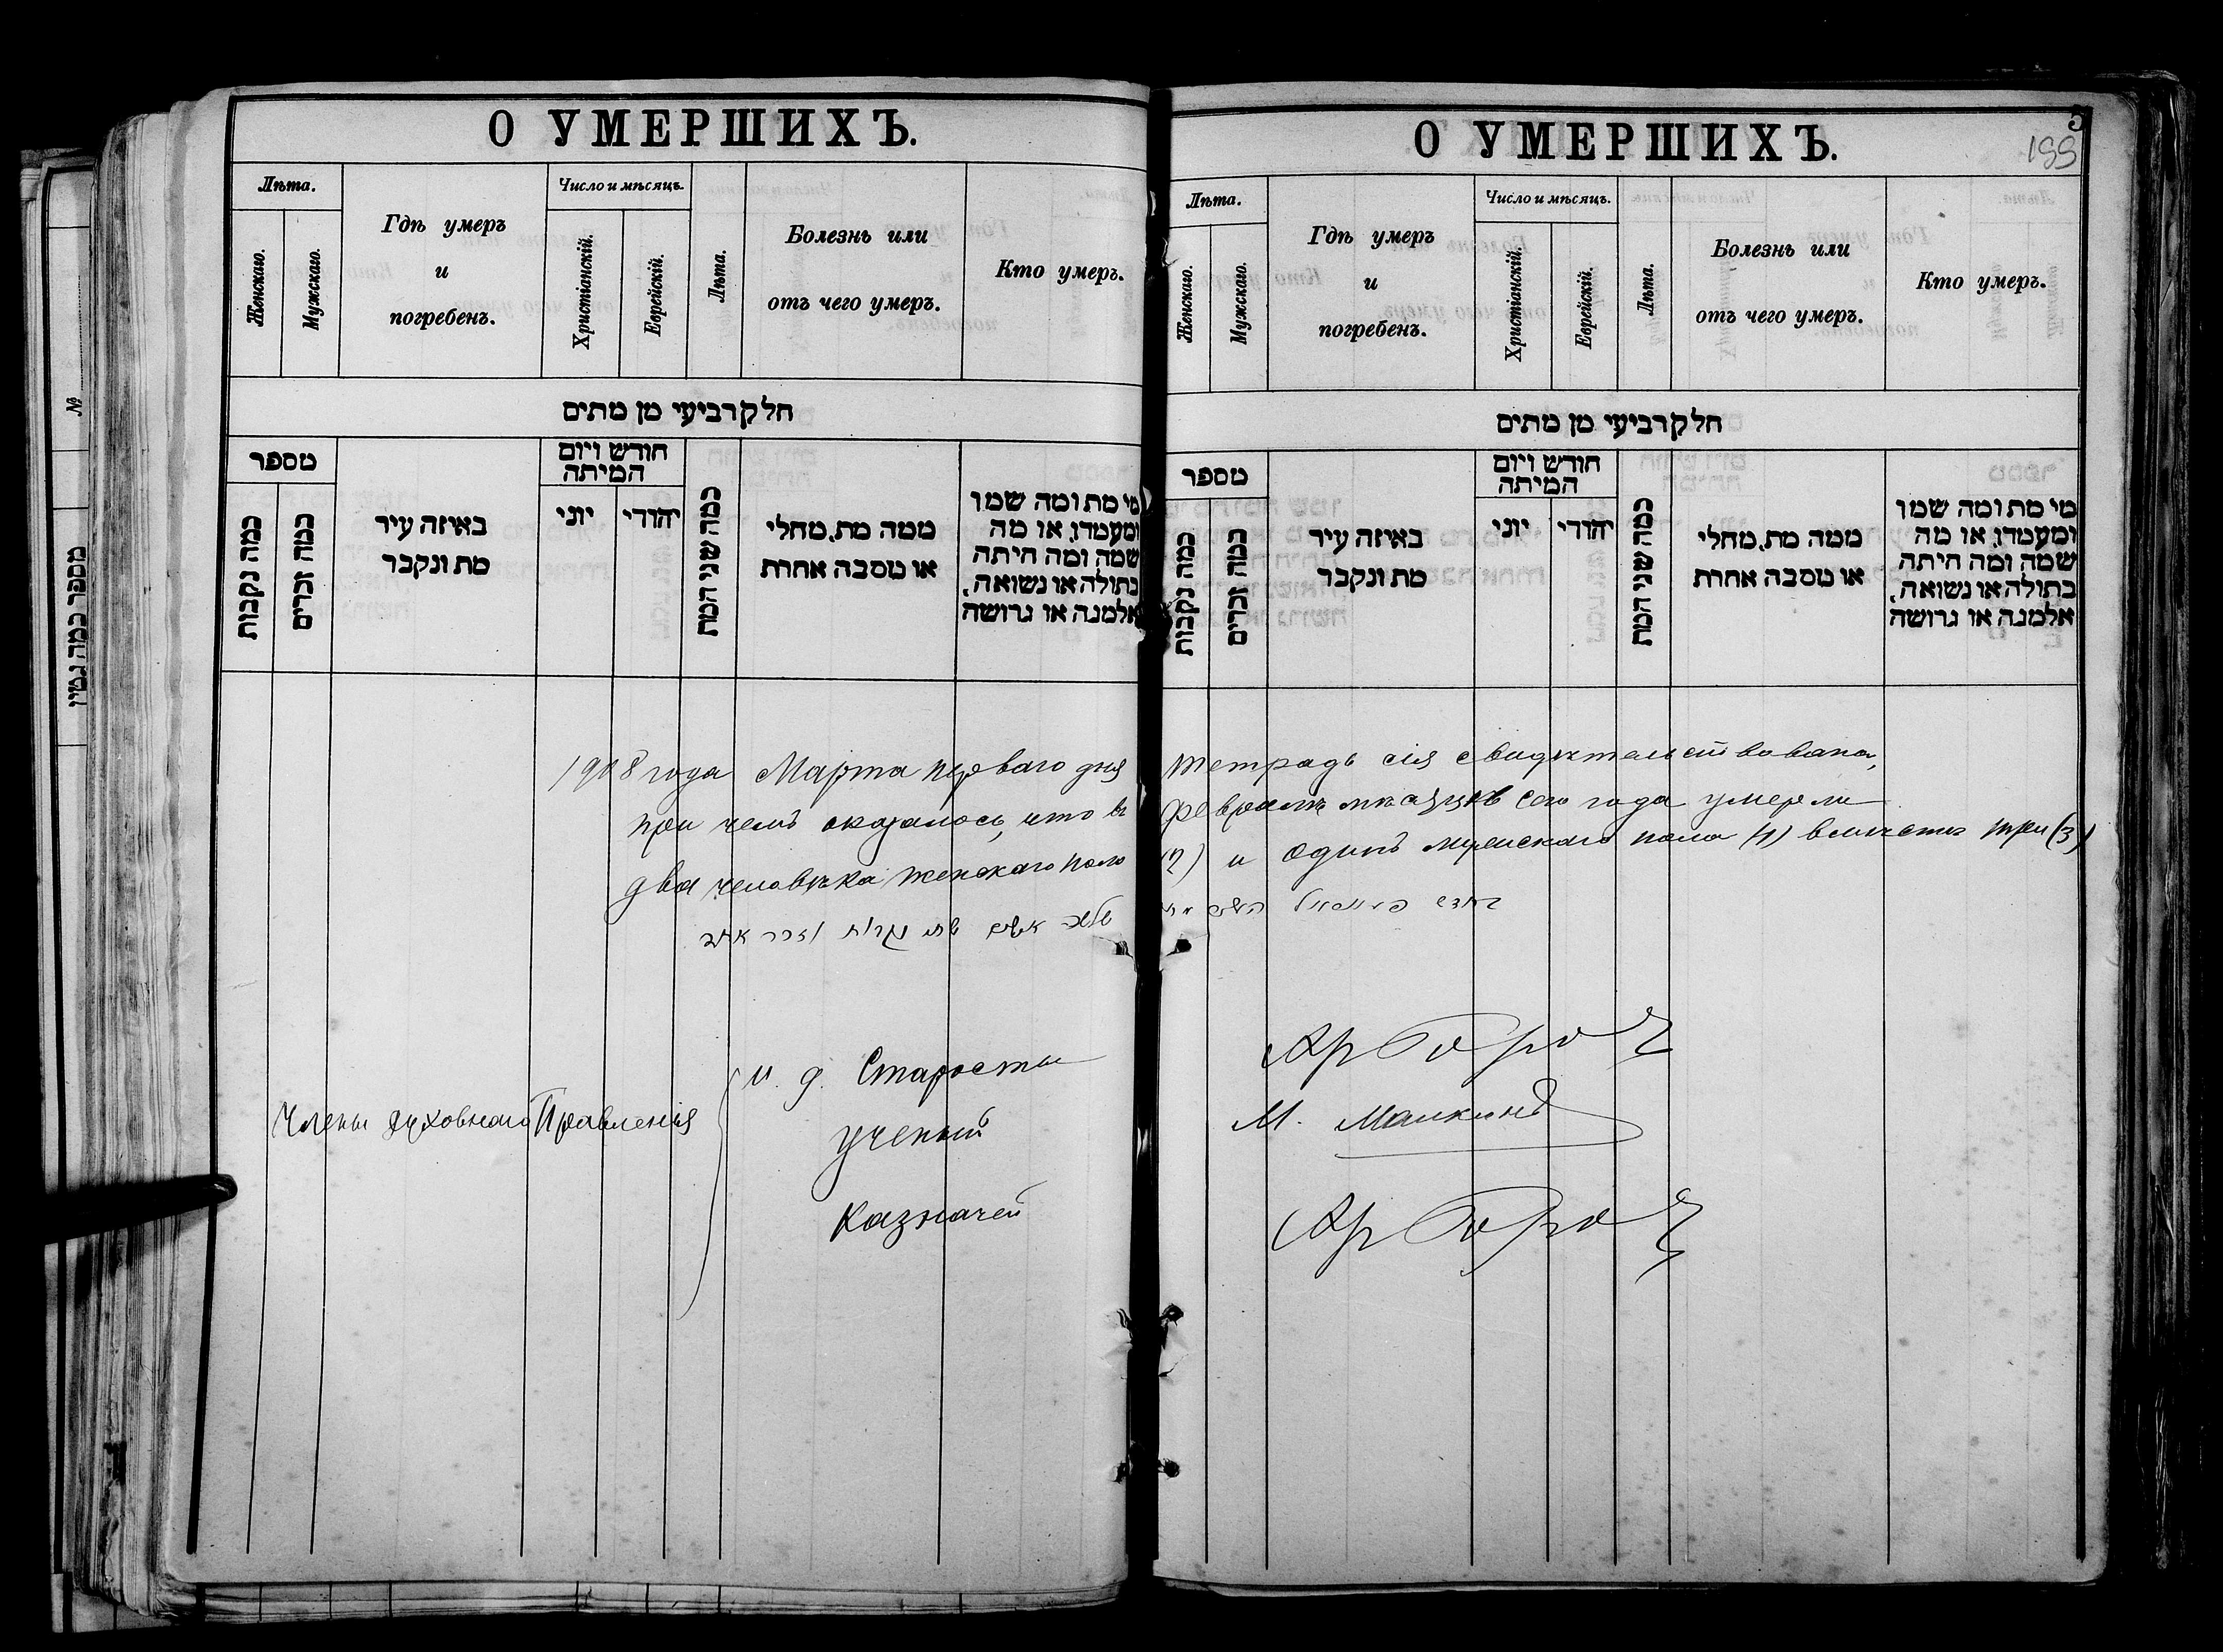 О УМЕРШИХЪ.
Лѣта.
Женскаго.
Мужскаго.
Гдѣ умеръ
и
погребенъ.
Число и мѣсяцъ.
Христіанскій.
Еврейскій.
Лѣта.
Болезнь или
отъ чего умеръ.
Кто умеръ.
חלק רביעי מן מתים
מספר
כמה נקבות
כמה זכרים
באיזה עיר
מת ונקבר
חודש ויום
המיתה
יוני
יהודי
כמה שני המת
ממה מת, מחלי
או מסבה אחרת
מי מת ומה שמו
ומעמדו, או מה
שמה ומה היתה
בתולה או נשואה,
אלמנה או גרושה
№
מספר כמה גטין
О УМЕРШИХЪ.
5
199
Лѣта.
Женскаго.
Мужскаго.
Гдѣ умеръ
и
погребенъ.
Число и мѣсяцъ.
Христіанскій.
Еврейскій.
Лѣта.
Болезнь или
отъ чего умеръ.
Кто умеръ.
חלק רביעי מן מתים
מספר
כמה נקבות
כמה זכרים
באיזה עיר
מת ונקבר
חודש ויום
המיתה
יוני
יהודי
כמה שני המת
ממה מת, מחלי
או מסבה אחרת
מי מת ומה שמו
ומעמדו, או מה
שמה ומה היתה
בתולה או נשואה,
אלמנה או גרושה
1908 года Марта перваго дня тетрадь сія свидѣтельствована,
при чемъ оказалось, что въ Февралѣ мѣсяцѣ сего года умерли
два человѣка женскаго пола (2) и одинъ мужскаго пола (1) вмѣстѣ три (3)
שתי נקבות וזכר אחד
Члены Духовнаго Правленія
и. д. Старосты
ученый М. Малкинъ
Казначей